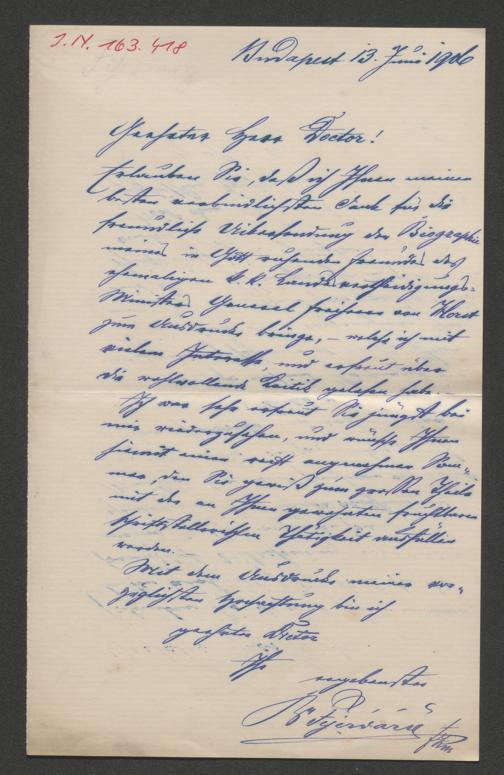 J.N. 163.418
Budapest 13. Juni 1906
Geehrter Herr Doctor!
Erlauben Sie, daß ich Ihnen meinen
besten verbindlichsten Dank für die
freundliche Uibersendung der Biographie
meines in Gott ruhenden Freundes des
ehemaligen k.k. Landesvertheidigungs-
Ministers General Freiherr von Horst
zum Ausdrucke bringe, – welche ich mit
vielem Interesse, und erfreut über
die wohlwollende Kritik gelesen habe.
Ich war sehr erfreut Sie jüngst bei
mir wiederzusehen, und wünsche Ihnen
hiemit einen recht angenehmen Som-
mer, den Sie gewiß zum großen Theile
mit der an Ihnen gewohnten fruchtbaren
schriftstellerischen Thätigkeit ausfüllen
werden.
Mit dem Ausdrucke meiner vor-
züglichsten Hochachtung bin ich
geehrter Doctor
Ihr
ergebenster
Br Fejérváry
FZM